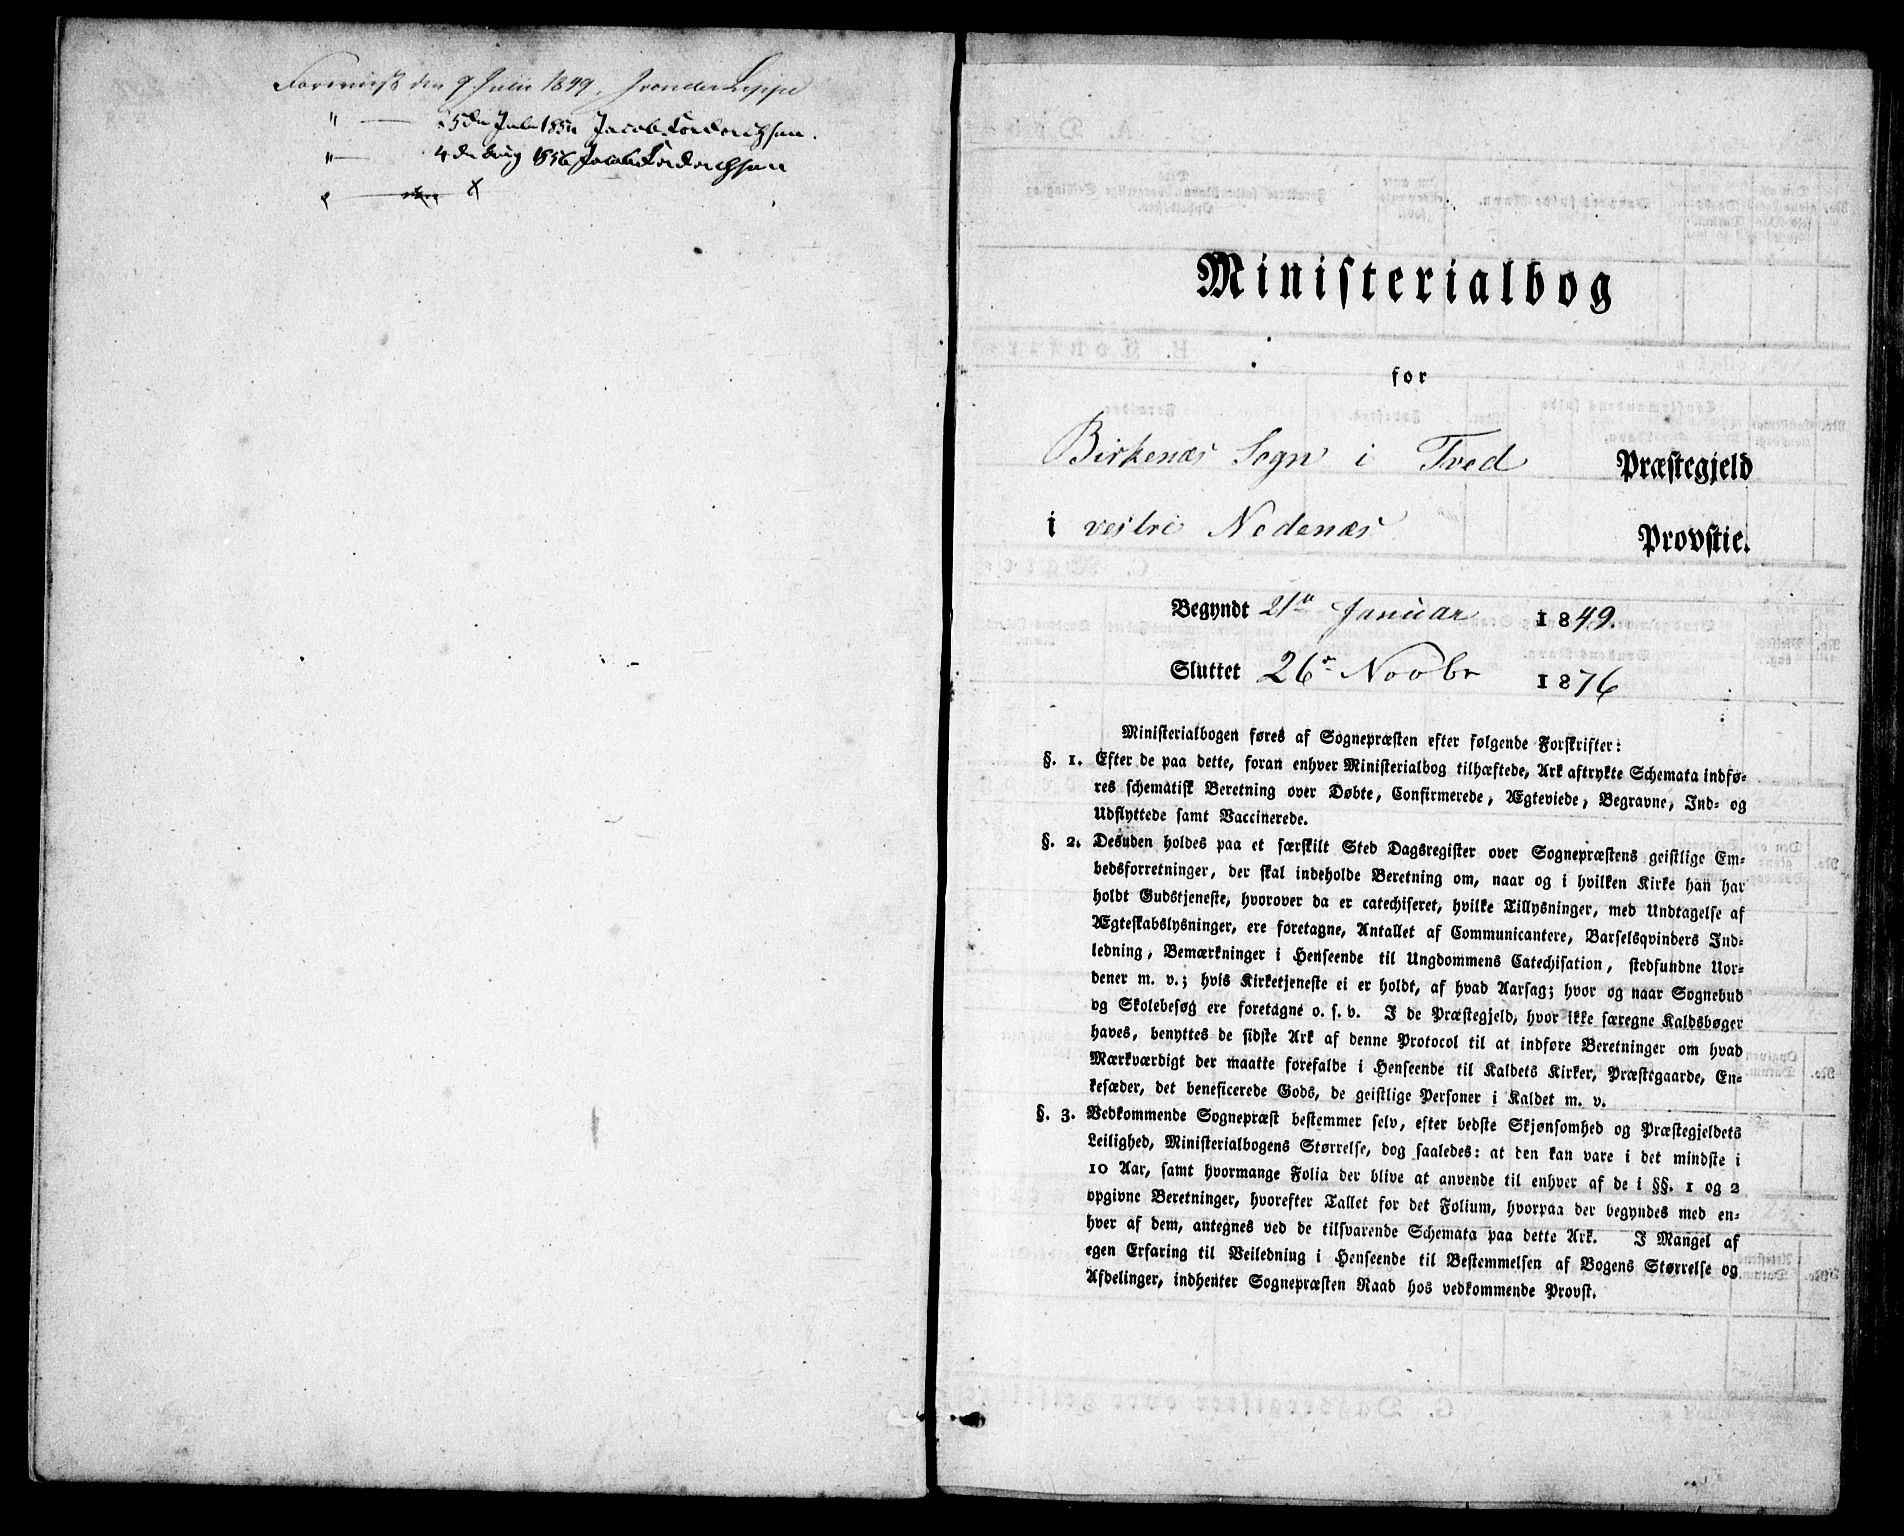 Foreviist den 9 Julii 1849. J von der Lippe
" — 5 de Julii 185 Jacob v. der Lippe
" — 4 de Aug 1856 Jacob v. der Lippe
Ministerialbog
for
Birkenæs Sogn i Tved Præstegjeld
i vestre Nedenæs Provstie.
Begyndt 21de Januar 1849.
Sluttet 26de Novbr 1876
Ministerialbogen føres af Sognepræsten efter følgende Forskrifter:
§. 1. Efter de paa dette, foran enhver Ministerialbog tilhæftede, Ark aftrykte Schemata indfø-
res schematisk Beretning over Døbte, Confirmerede, Ægteviede, Begravne, Ind- og
Udflyttede samt Vaccinerede.
§. 2. Desuden holdes paa et særskilt Sted Dagsregister over Sognepræstens geistlige Em-
bedsforretninger, der skal indeholde Beretning om, naar og i hvilken Kirke han har
holdt Gudstjeneste, hvorover da er catechiseret, hvilke Tillysninger, med Undtagelse af
Ægteskabslysninger, ere foretagne, Antallet af Communicantere, Barselsqvinders Ind-
ledning, Bemærkninger i Henseende til Ungdommens Catechisation, stedfundne Uor-
dener m. v.; hvis Kirketjeneste ei er holdt, af hvad Aarsag; hvor og naar Sognebud
og Skolebesøg ere foretagne o. s. v. I de Præstegjeld, hvor ikke særegne Kaldsbøger
haves, benyttes de sidste Ark af denne Protocol til at indføre Beretninger om hvad
Mærkværdigt der maatte forefalde i Henseende til Kaldets Kirker, Præstegaarde, En-
kesæder, det beneficerede Gods, de geistlige Personer i Kaldet m. v.
§. 3. Vedkommende Sognepræst bestemmer selv, efter bedste Skjønsomhed og Præstegjeldets
Leilighed, Ministerialbogens Størrelse, dog saaledes: at den kan vare i det mindste i
10 Aar, samt hvormange Folia der blive at anvende til enhver af de i §§. 1 og 2
opgivne Beretninger, hvorefter Tallet for det Folium, hvorpaa der begyndes med en-
hver af dem, antegnes ved de tilsvarende Schemata paa dette Ark. I Mangel af
egen Erfaring til Veiledning i Henseende til Bestemmelsen af Bogens Størrelse og
Afdelinger, indhenter Sognepræsten Raad hos vedkommende Provst.